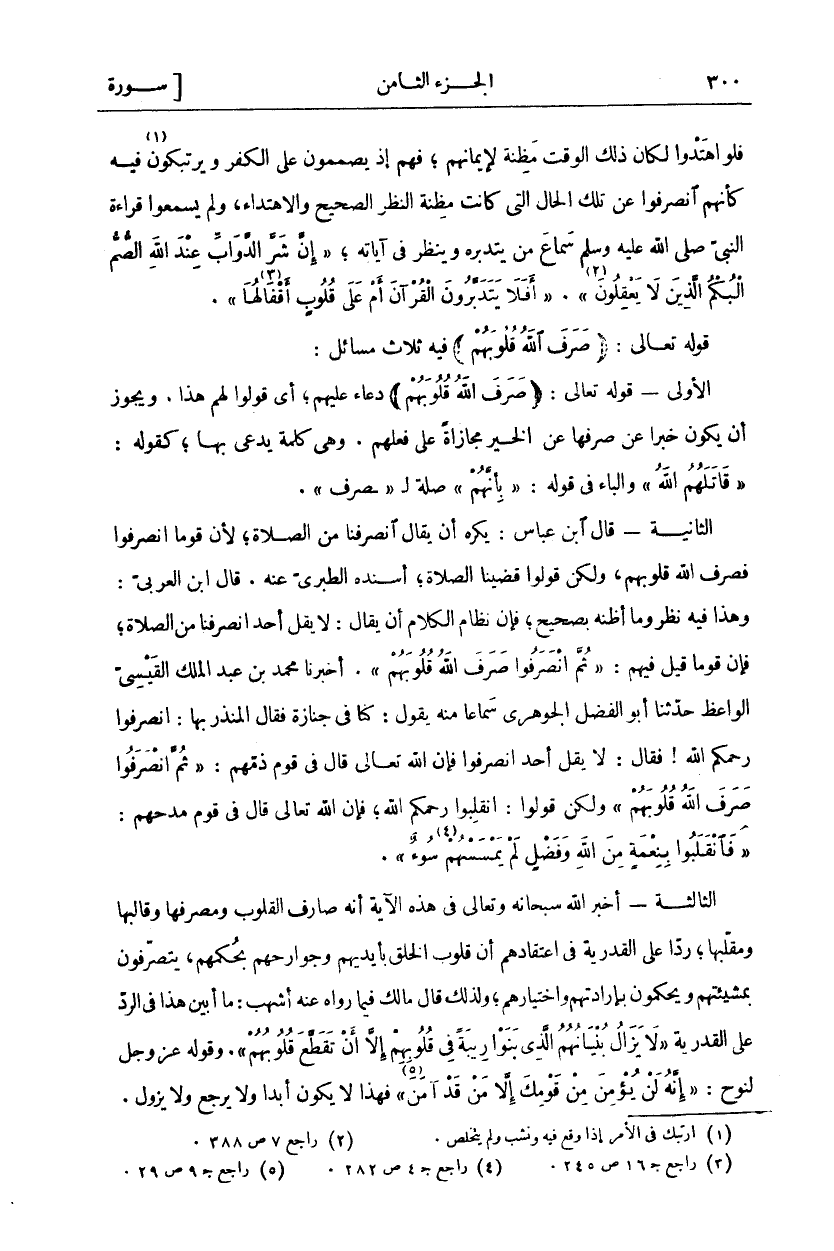 ٣٠٠ الجزء الثامن [ سورة
فلو اهتَدْوا لكان ذلك الوقت مَظِنة لإيمانهم ؛ فهم إذ يصممون على الكفر ويرتبكون فيه (١)
كأنهم ٱنصرفوا عن تلك الحال التى كانت مظِنة النظر الصحيح والاهتداء، ولم يسمعوا قراءة
النبىّ صلى الله عليه وسلم سَماعَ من يتدبره وينظر فى آياته ؛ « إِنَّ شَرَّ الدَّوَابِّ عِنْدَ اللهِ الصُّمُّ
الْبُكْمُ الَّذِينَ لَا يَعْقِلُونَ (٢) » . « أَفَلَا يَتَدَبَّرُونَ الْقُرْآنَ أَمْ عَلَى قُلُوبٍ أَقْفَالُهَا (٣) » .
قوله تعالى : ﴿ صَرَفَ ٱللهُ قُلُوبَهُمْ ﴾ فيه ثلاث مسائل :
الأولى — قوله تعالى : ﴿ صَرَفَ اللهُ قُلُوبَهُمْ ﴾ دعاء عليهم؛ أى قولوا لهم هذا . ويجوز
أن يكون خبرا عن صرفها عن الخير مجازاةً على فعلهم . وهى كلمة يدعى بها ؛ كقوله :
« قَاتَلَهُمُ اللهُ » والباء فى قوله : « بِأَنَّهُمْ » صلة لـ « ـصرف » .
الثانية — قال ٱبن عباس : يكره أن يقال ٱنصرفنا من الصلاة؛ لأن قوما انصرفوا
فصرف الله قلوبهم، ولكن قولوا قضينا الصلاة؛ أسنده الطبرىّ عنه . قال ابن العربىّ :
وهذا فيه نظر وما أظنه بصحيح؛ فإن نظام الكلام أن يقال : لا يقل أحد انصرفنا من الصلاة؛
فإن قوما قيل فيهم : « ثُمَّ انْصَرَفُوا صَرَفَ اللهُ قُلُوبَهُمْ » . أخبرنا محمد بن عبد الملك القَيْسِىّ
الواعظ حدّثنا أبو الفضل الجوهرى سَماعا منه يقول : كنا فى جنازة فقال المنذر بها : انصرفوا
رحمكم الله ! فقال : لا يقل أحد انصرفوا فإن الله تعالى قال فى قوم ذمّهم : « ثُمَّ انْصَرَفُوا
صَرَفَ اللهُ قُلُوبَهُمْ » ولكن قولوا : انقلِبوا رحمكم الله؛ فإن الله تعالى قال فى قوم مدحهم :
« فَٱنْقَلَبُوا بِنِعْمَةٍ مِنَ اللهِ وَفَضْلٍ لَمْ يَمْسَسْهُمْ سُوءٌ (٤) » .
الثالثة — أخبر الله سبحانه وتعالى فى هذه الآية أنه صارف القلوب ومصرفها وقالبها
ومقلّبها؛ ردّا على القدرية فى اعتقادهم أن قلوب الخلق بأيديهم وجوارحهم بحُكمهم، يتصرّفون
بمشيئتهم ويحكمون بإرادتهم واختيارهم؛ ولذلك قال مالك فيما رواه عنه أشهب : ما أبين هذا فى الردّ
على القدرية «لَا يَزَالُ بُنْيَانُهُمُ الَّذِى بَنَوْا رِيبَةً فِى قُلُوبِهِمْ إِلَّا أَنْ تَقَطَّعَ قُلُوبُهُمْ». وقوله عز وجل
لنوح : « إِنَّهُ لَنْ يُؤْمِنَ مِنْ قَوْمِكَ إِلَّا مَنْ قَدْ آمَنَ (٥) » فهذا لا يكون أبدا ولا يرجع ولا يزول .
(١) ارتبك فى الأمر إذا وقع فيه ونشب ولم يتخلص . (٢) راجع ٧ ص ٣٨٨ .
(٣) راجع جـ ١٦ ص ٢٤٥ . (٤) راجع جـ ٤ ص ٢٨٢ . (٥) راجع جـ ٩ ص ٢٩ .